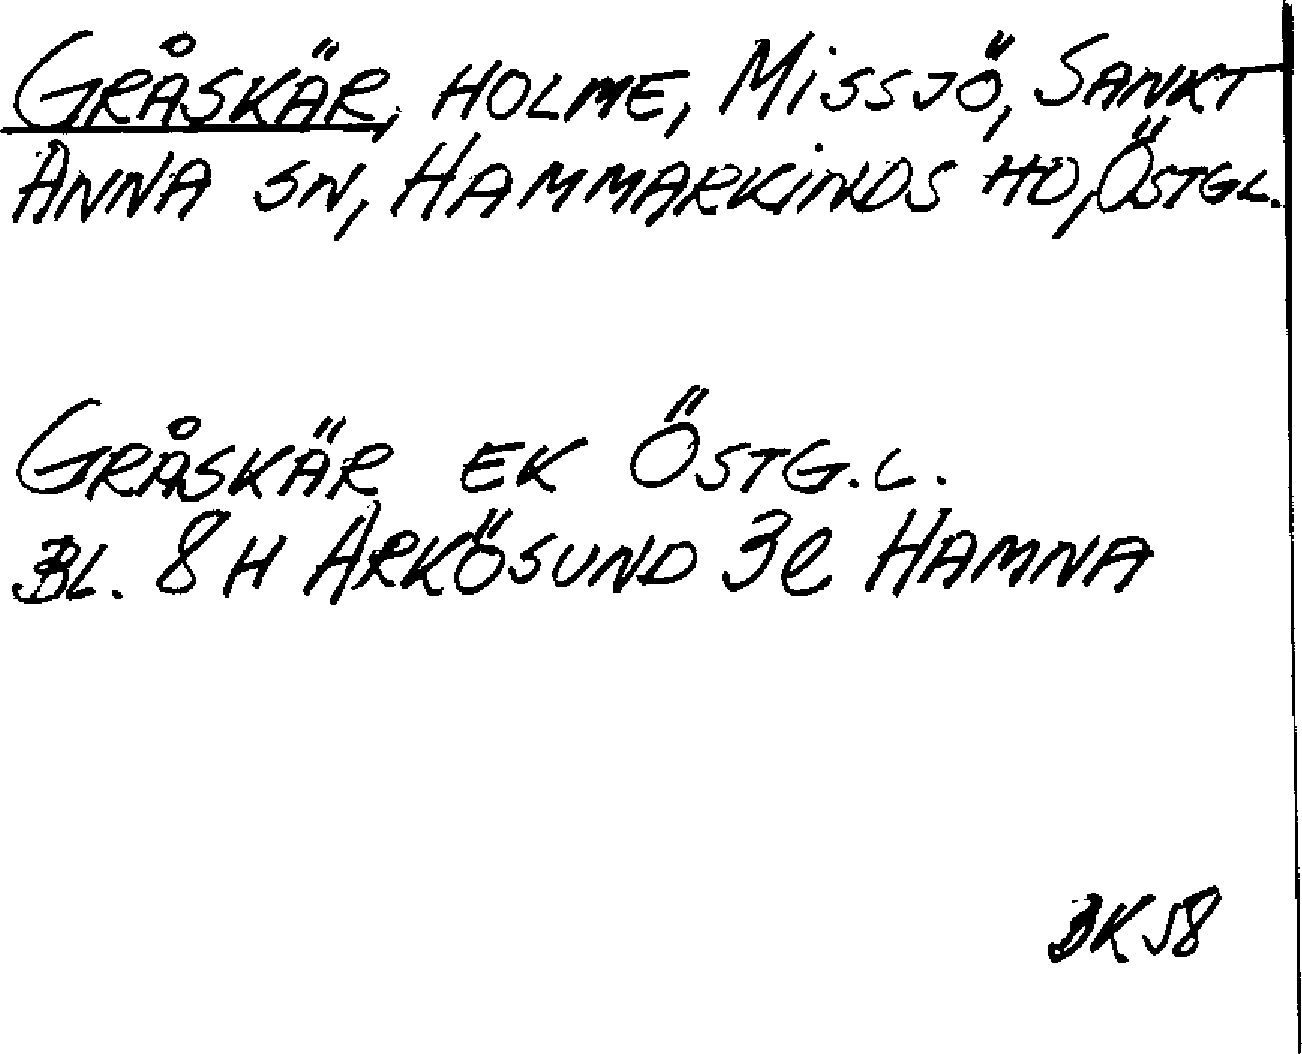 GRÅSKÄR, HOLME, MISSJÖ, SANKT
ANNA SN, HAMMARKINDS HD, ÖSTGL.
GRÅSKÄR EK ÖSTG.L.
BL. 8H ARKÖSUND 3e HAMNA
BK58